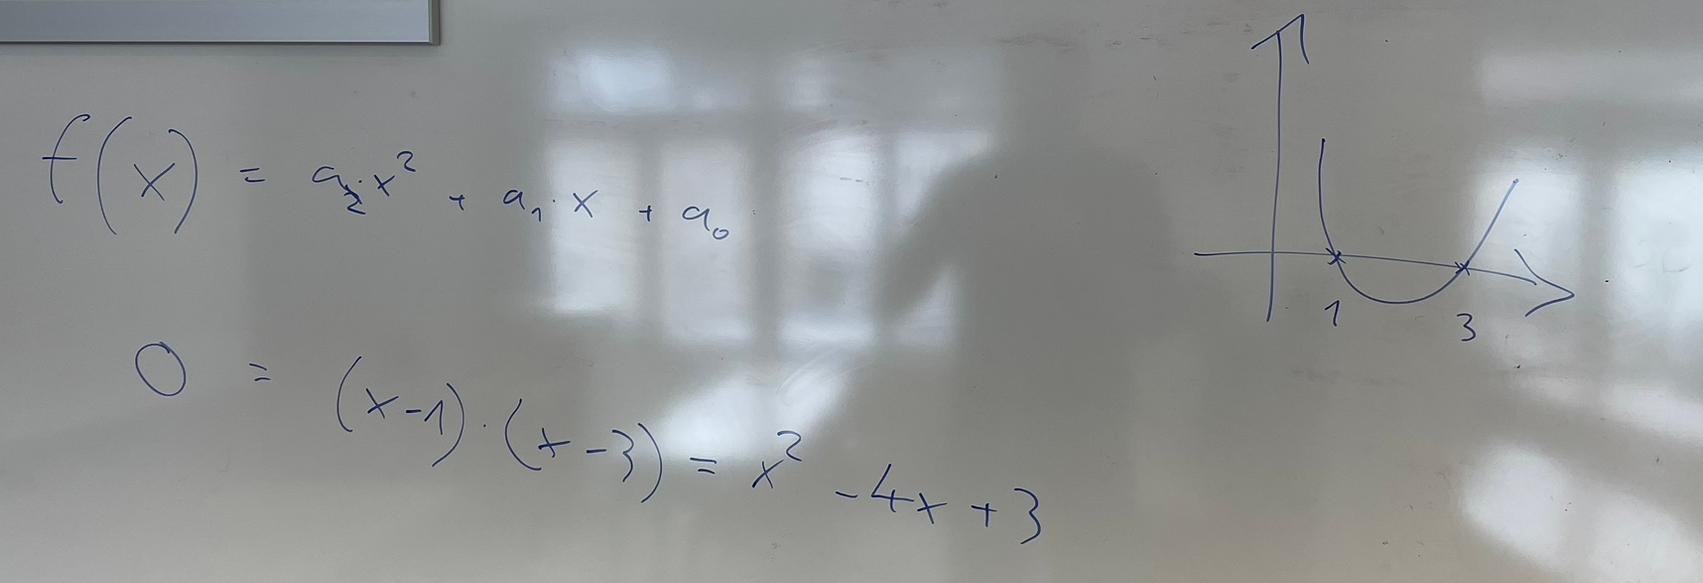 f(x) = a₂·x² + a₁·x + a₀
0 = (x-1)·(x-3) = x² -4x +3
1 3